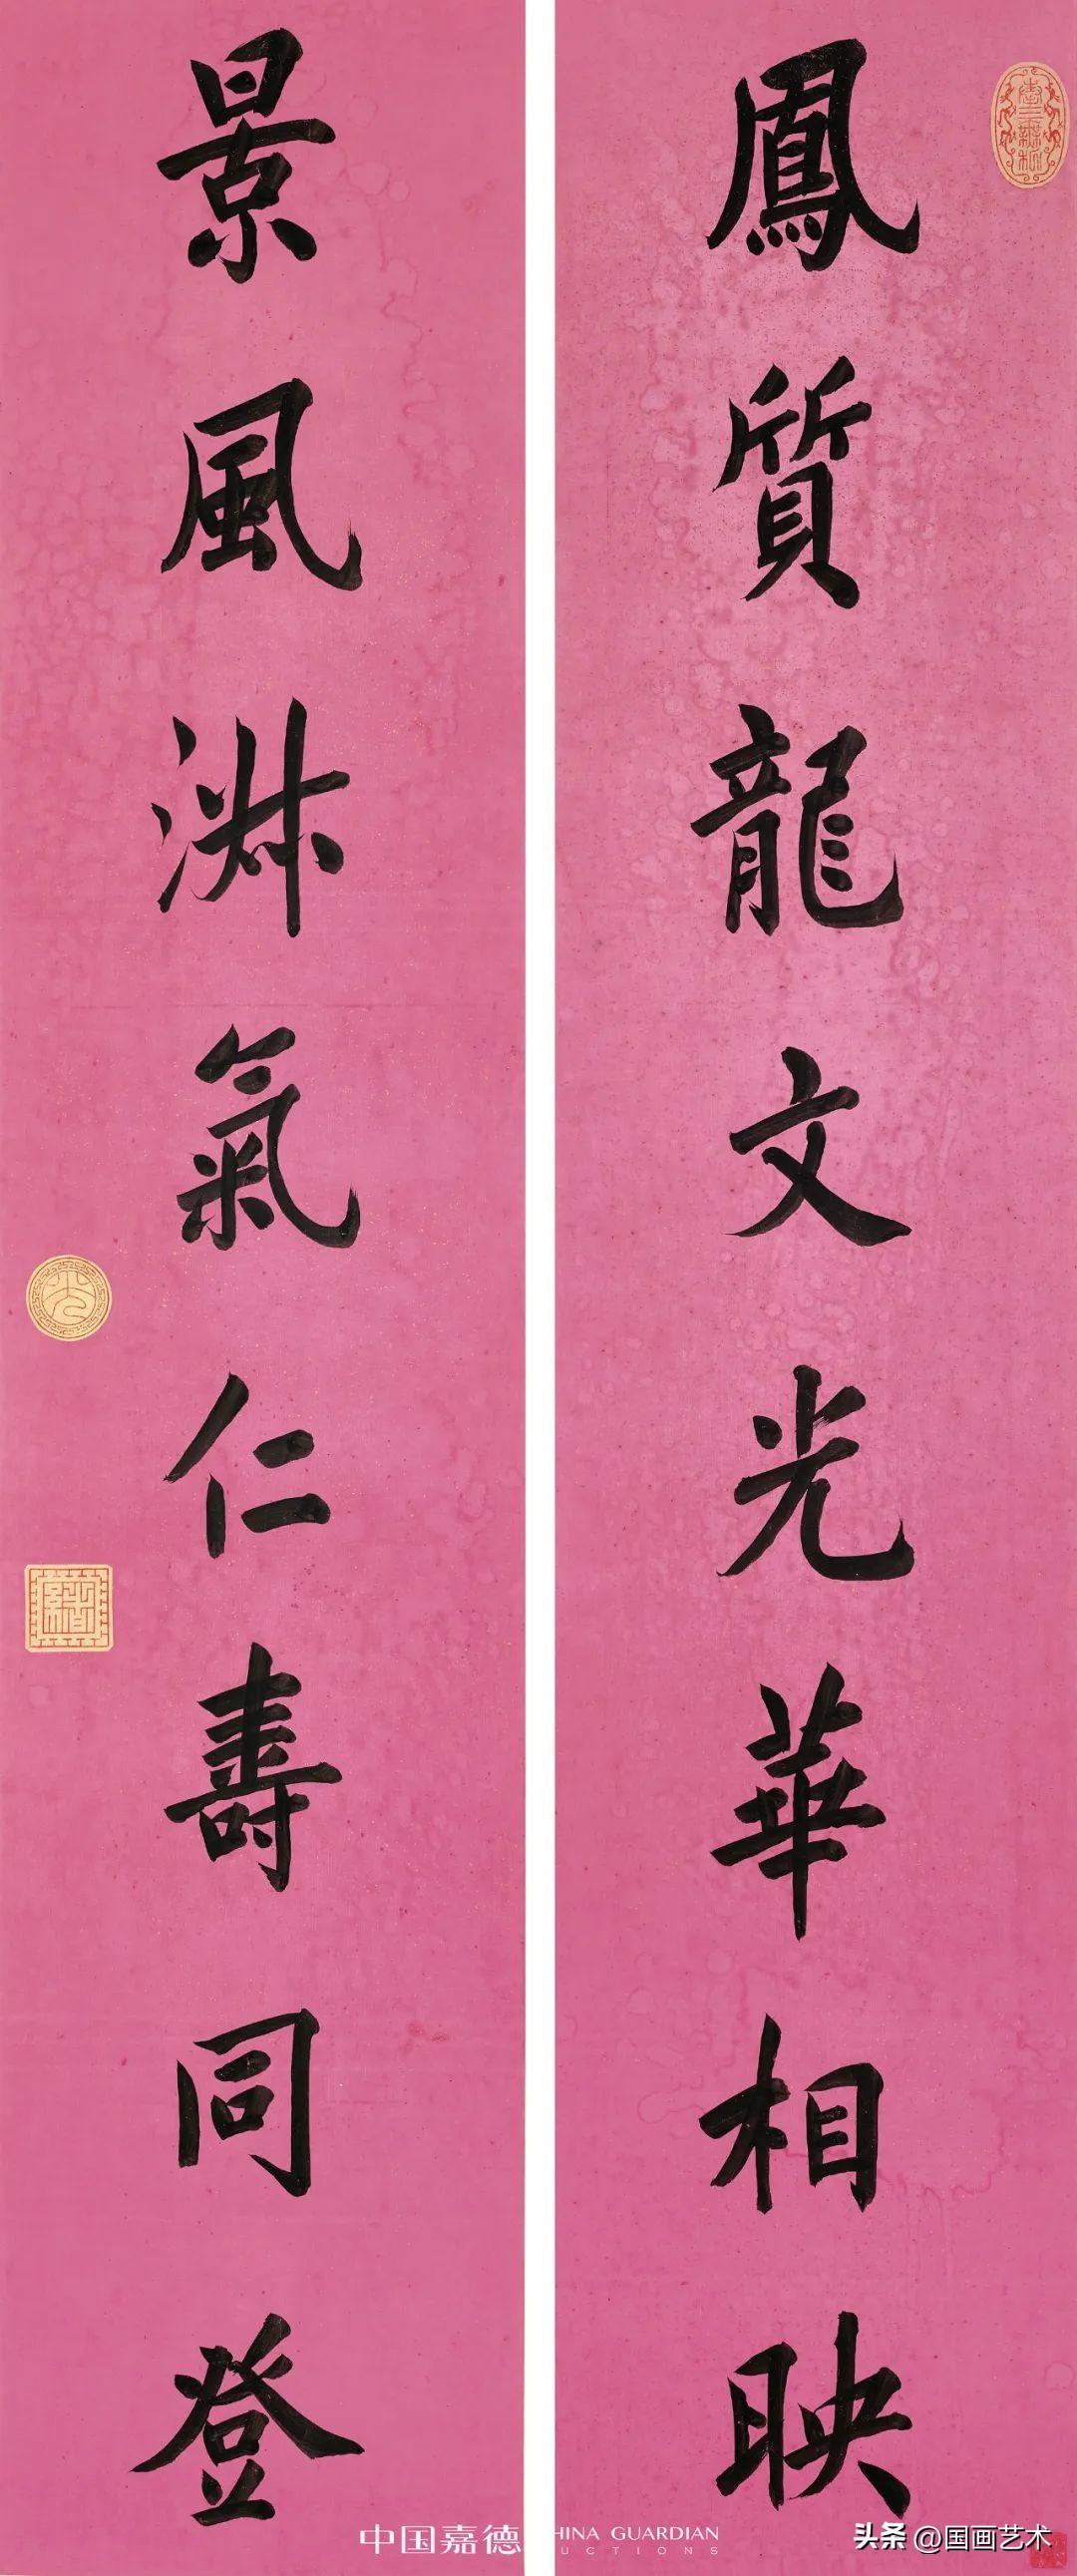 鳳質龍文光華相映
景風淑氣仁壽同登
中国嘉德
HINA GUARDIAN
UCTIONS
头条 @国画艺术